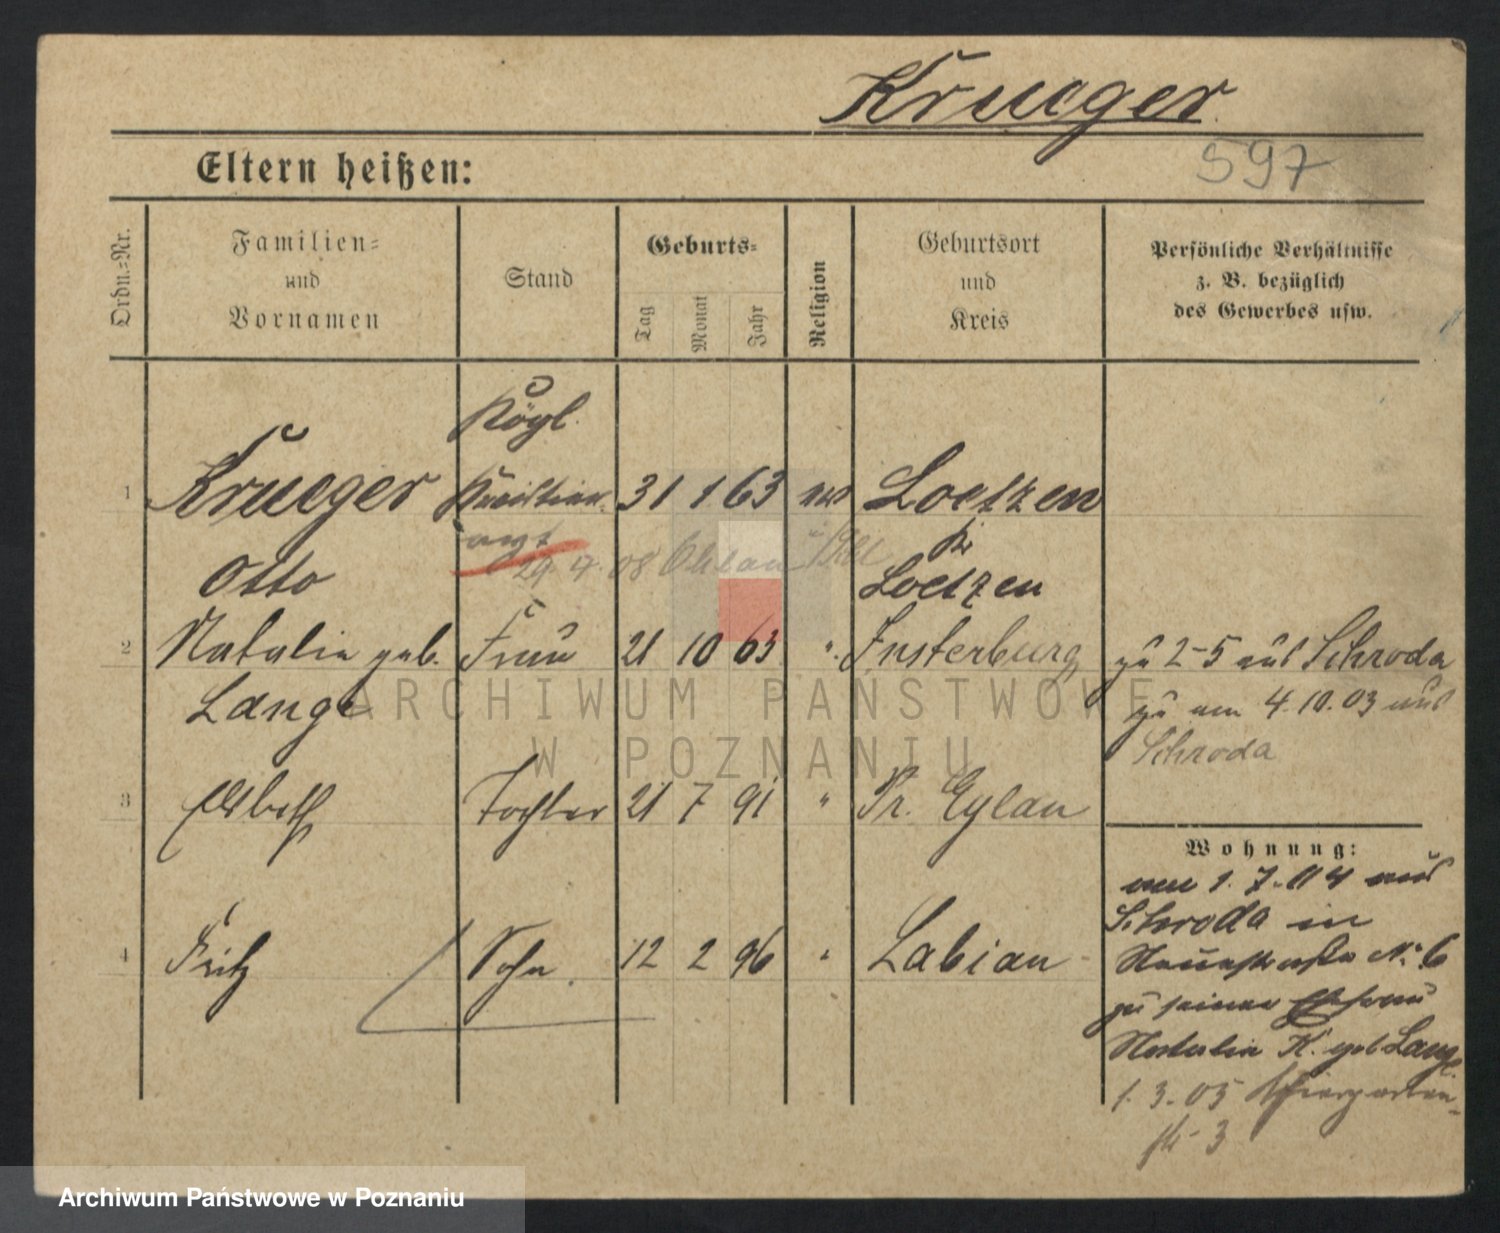 Krueger
597
Eltern heißen:
Ordn.-Nr.
Familien-
und
Vornamen
Stand
Geburts-
Tag
Monat
Jahr
Religion
Geburtsort
und
Kreis
Persönliche Verhältnisse
z. B. bezüglich
des Gewerbes usw.
Kögl.
1 Krueger 31 1 63 Loetzen
Kr
29. 4. 08 Ohlau
Otto Loetzen
2 Natalie geb. Frau 21 10 63 " Insterburg zu 2-5 aus Schroda
Lange
zu am 4.10.03 aus
Schroda
3 Elsbeth Tochter 21 7 91 " Pr. Eylau
Wohnung:
am 1. 7. 04 aus
Schroda in
4 Fritz Sohn 12 2 96 " Labiau
Nauestraße No 6
zu seiner Ehefrau
Natalie K. geb Lange
1. 3. 05 Thiergarten-
str 3
ARCHIWUM PAŃSTWOWE
W POZNANIU
Archiwum Państwowe w Poznaniu